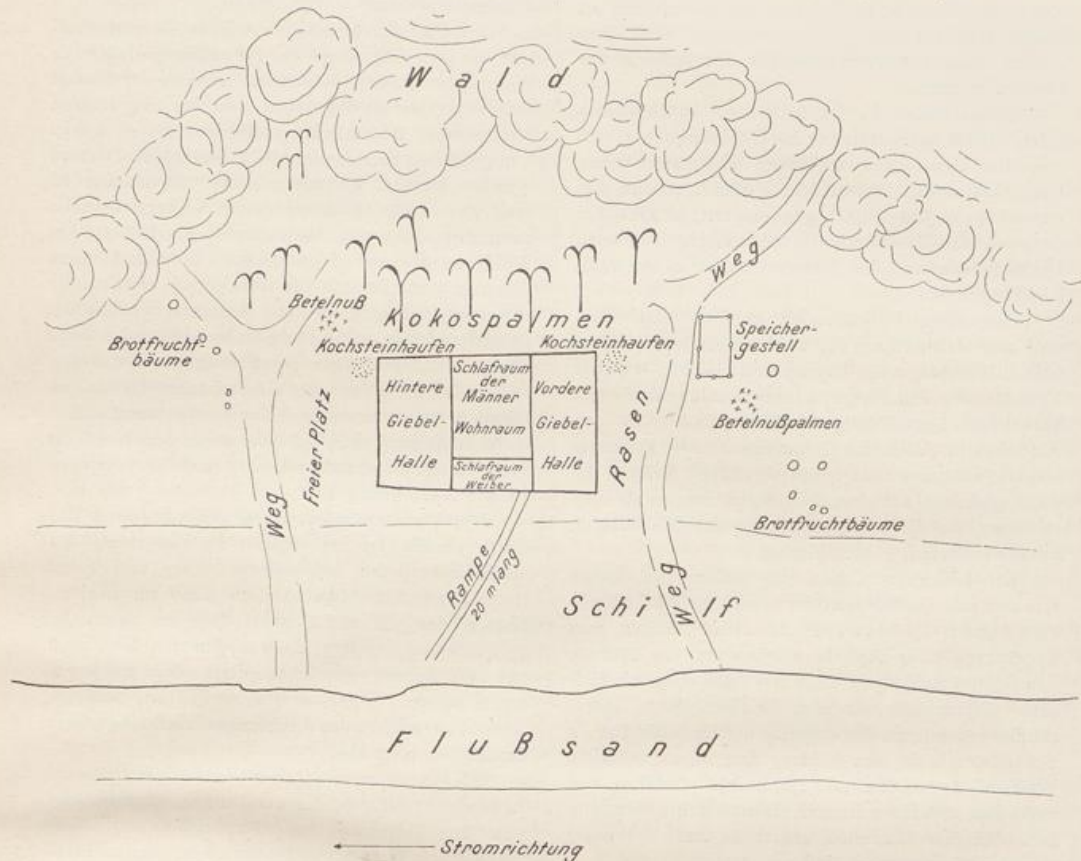 Wald
Weg
Betelnuß
Kokospalmen
Brotfrucht-
bäume
Kochsteinhaufen
Kochsteinhaufen
Speicher-
gestell
Hintere
Giebel-
Halle
Schlafraum
der
Männer
Wohnraum
Schlafraum
der
Weiber
Vordere
Giebel-
Halle
Freier Platz
Rasen
Betelnußpalmen
Weg
Brotfruchtbäume
Rampe
20 m lang
Schilf
Weg
Flußsand
Stromrichtung